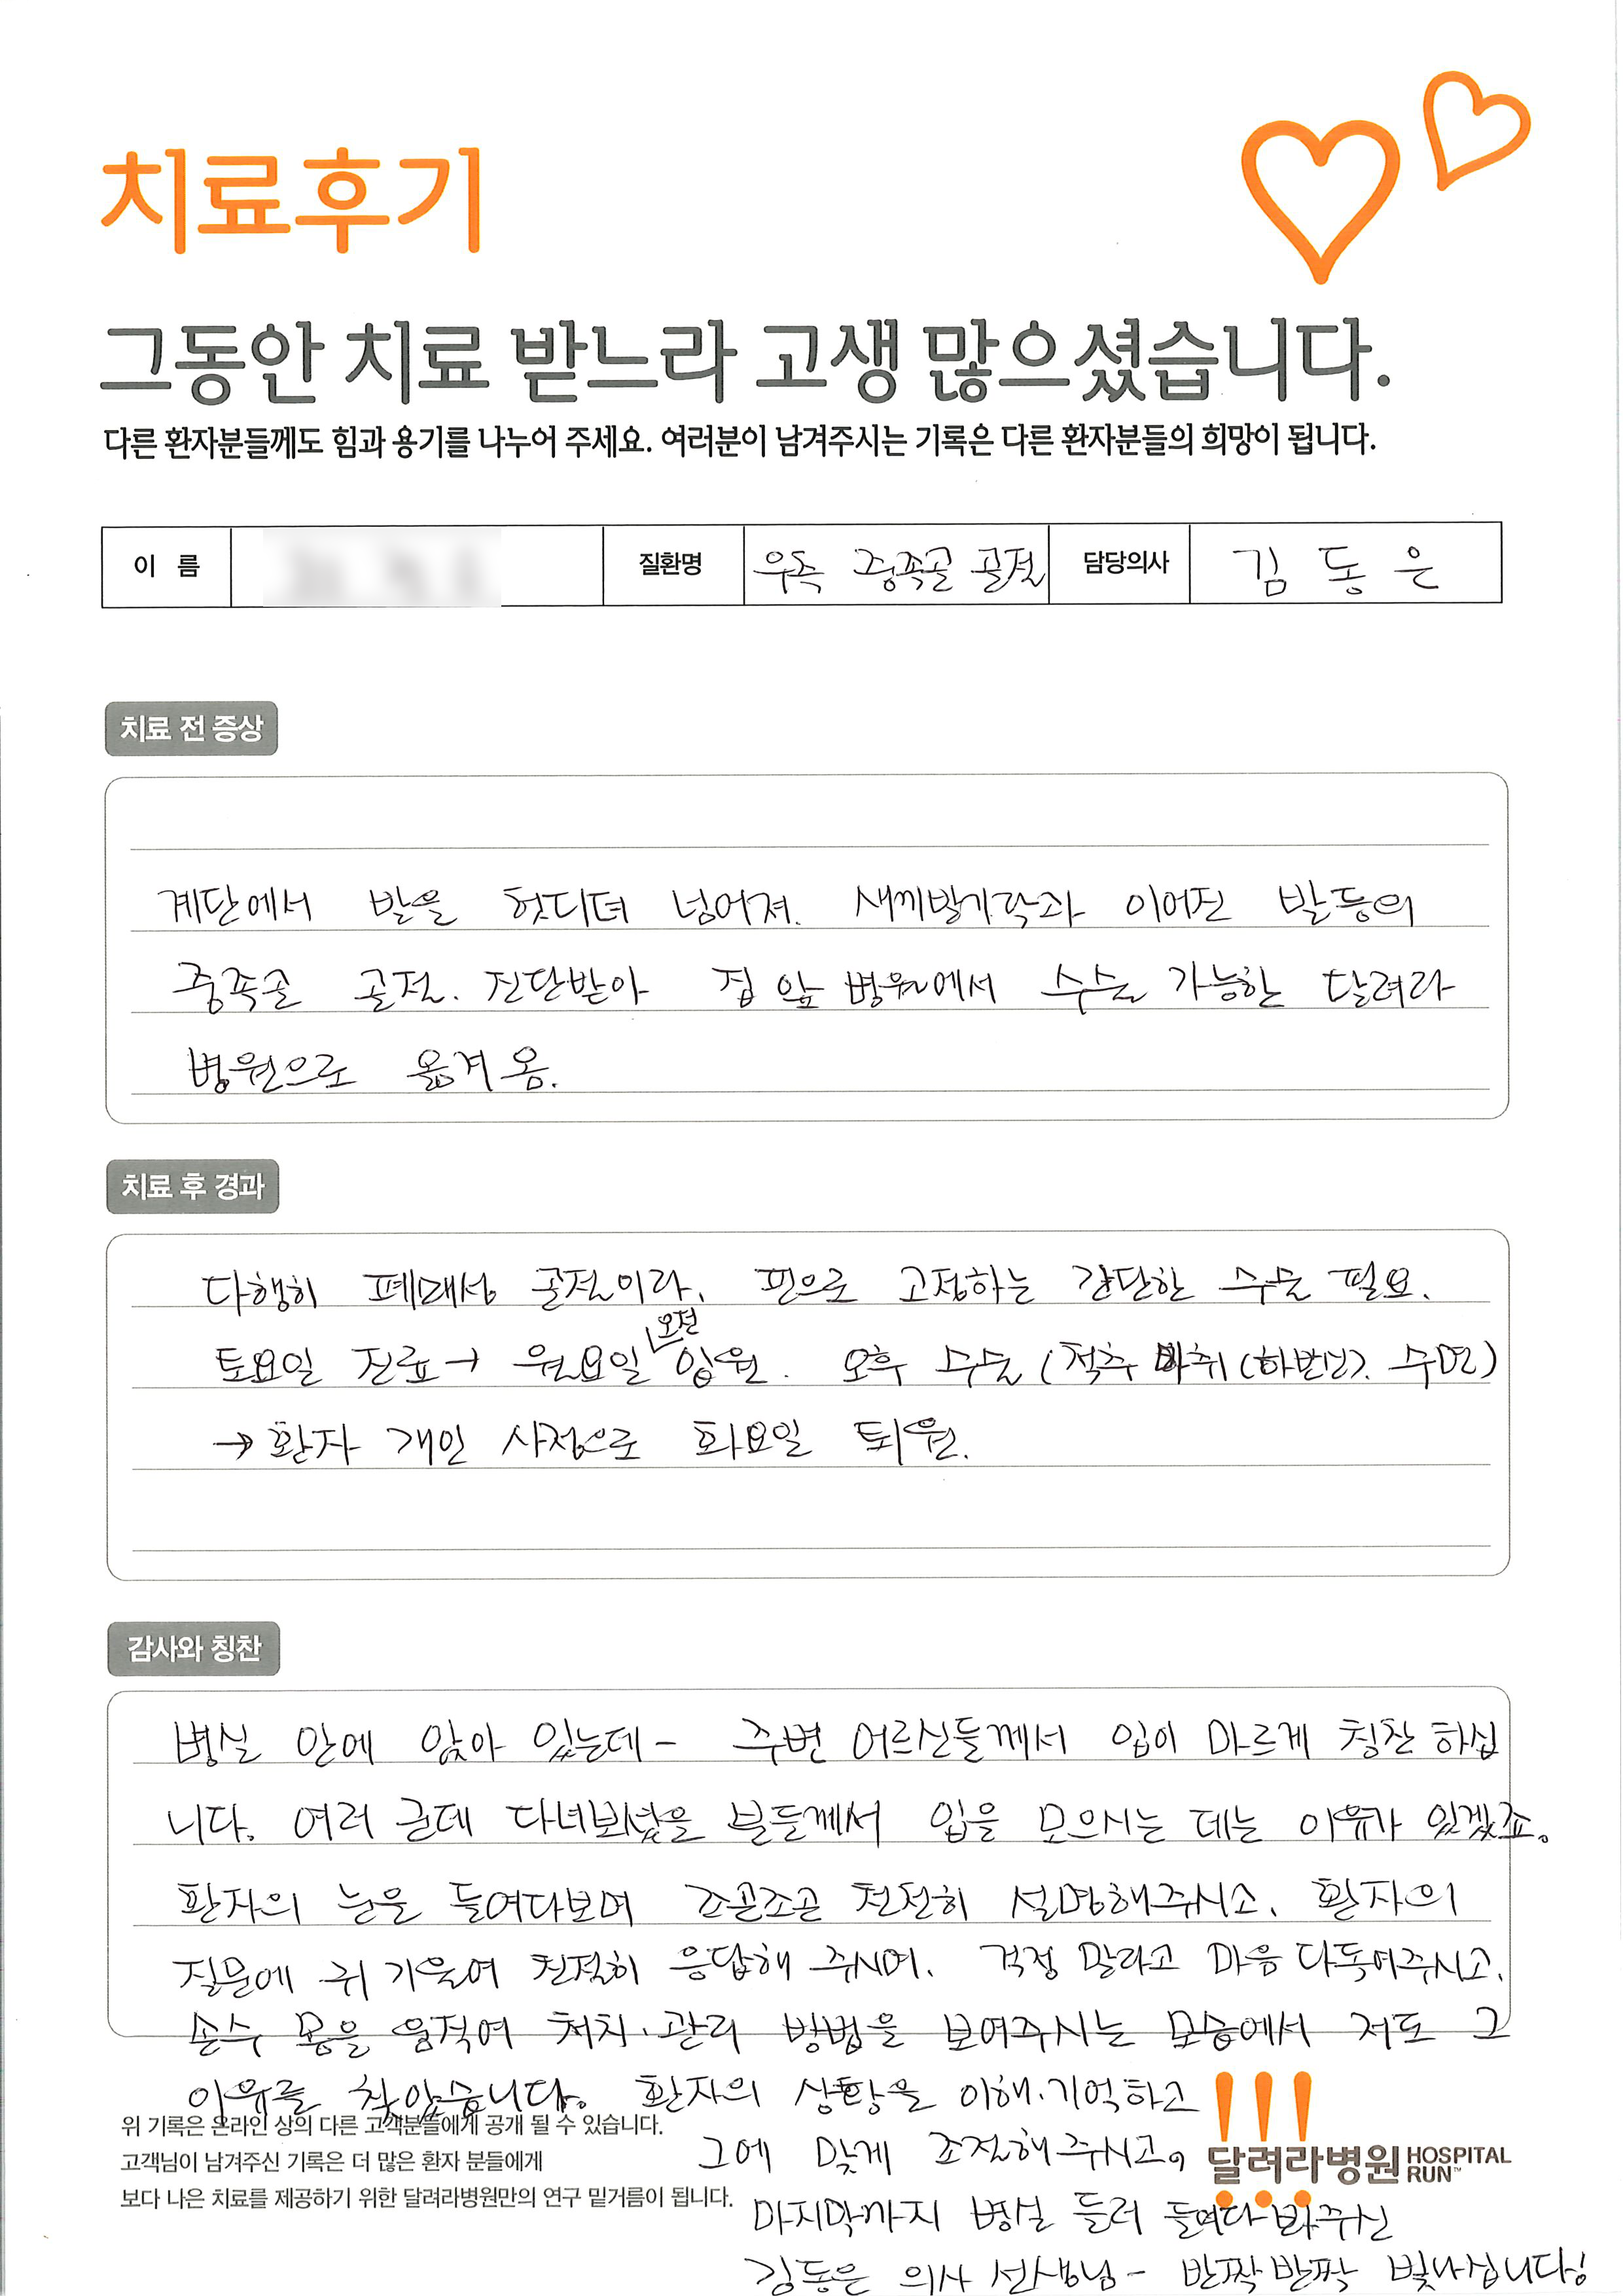 치료후기
그동안 치료 받느라 고생 많으셨습니다.
다른 환자분들께도 힘과 용기를 나누어 주세요. 여러분이 남겨주시는 기록은 다른 환자분들의 희망이 됩니다.
이 름 질환명 우측 중족골 골절 담당의사 김동은
치료 전 증상
계단에서 발을 헛디뎌 넘어져. 새끼발가락과 이어진 발등의
중족골 골절. 진단받아 집 앞 병원에서 수술 가능한 달려라
병원으로 옮겨 옴.
치료 후 경과
다행히 폐쇄성 골절이라, 핀으로 고정하는 간단한 수술 필요.
토요일 진료 → 월요일 오전 입원. 오후 수술 (척추 마취(하반신), 수면)
→ 환자 개인 사정으로 화요일 퇴원.
감사와 칭찬
병실 안에 앉아 있는데- 주변 어르신들께서 입이 마르게 칭찬 하십
니다. 여러 군데 다녀보셨을 분들께서 입을 모으시는 데는 이유가 있겠죠.
환자의 눈을 들여다보며 조곤조곤 천천히 설명해주시고, 환자의
질문에 귀 기울여 친절히 응답해 주시며, 걱정 말라고 마음 다독여주시고,
손수 몸을 움직여 처치·관리 방법을 보여주시는 모습에서 저도 그
이유를 찾았습니다. 환자의 상황을 이해·기억하고
그에 맞게 조절해주시고,
마지막까지 병실 들러 들여다 봐주신
김동은 의사 선생님- 반짝반짝 빛나십니다!
위 기록은 온라인 상의 다른 고객분들에게 공개 될 수 있습니다.
고객님이 남겨주신 기록은 더 많은 환자 분들에게
보다 나은 치료를 제공하기 위한 달려라병원만의 연구 밑거름이 됩니다.
달려라병원 HOSPITAL RUN™